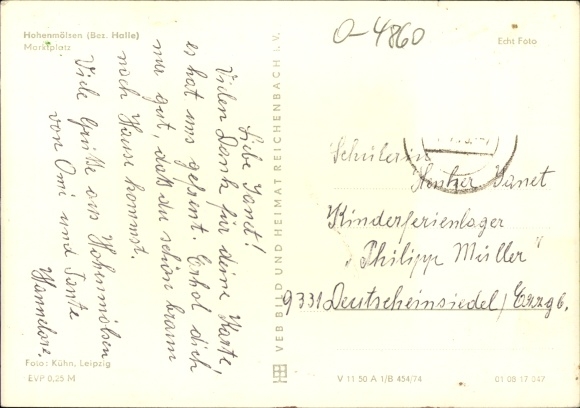 Hohenmölsen (Bez. Halle)
Marktplatz
Liebe Janet!
Vielen Dank für deine Karte,
es hat uns gefreut. Erhol dich
nur gut, daß du schön braun
nach Hause kommst.
Viele Grüße aus Hohenmölsen
von Omi und Tante
Hannelore.
Foto: Kühn, Leipzig
EVP 0,25 M
VEB BILD UND HEIMAT REICHENBACH I. V.
O-4860
Echt Foto
Schülerin
Janet
Kinderferienlager
"Philipp Müller"
9331 Deutscheinsiedel/Erzgb.
V 11 50 A 1/B 454/74
01 08 17 047